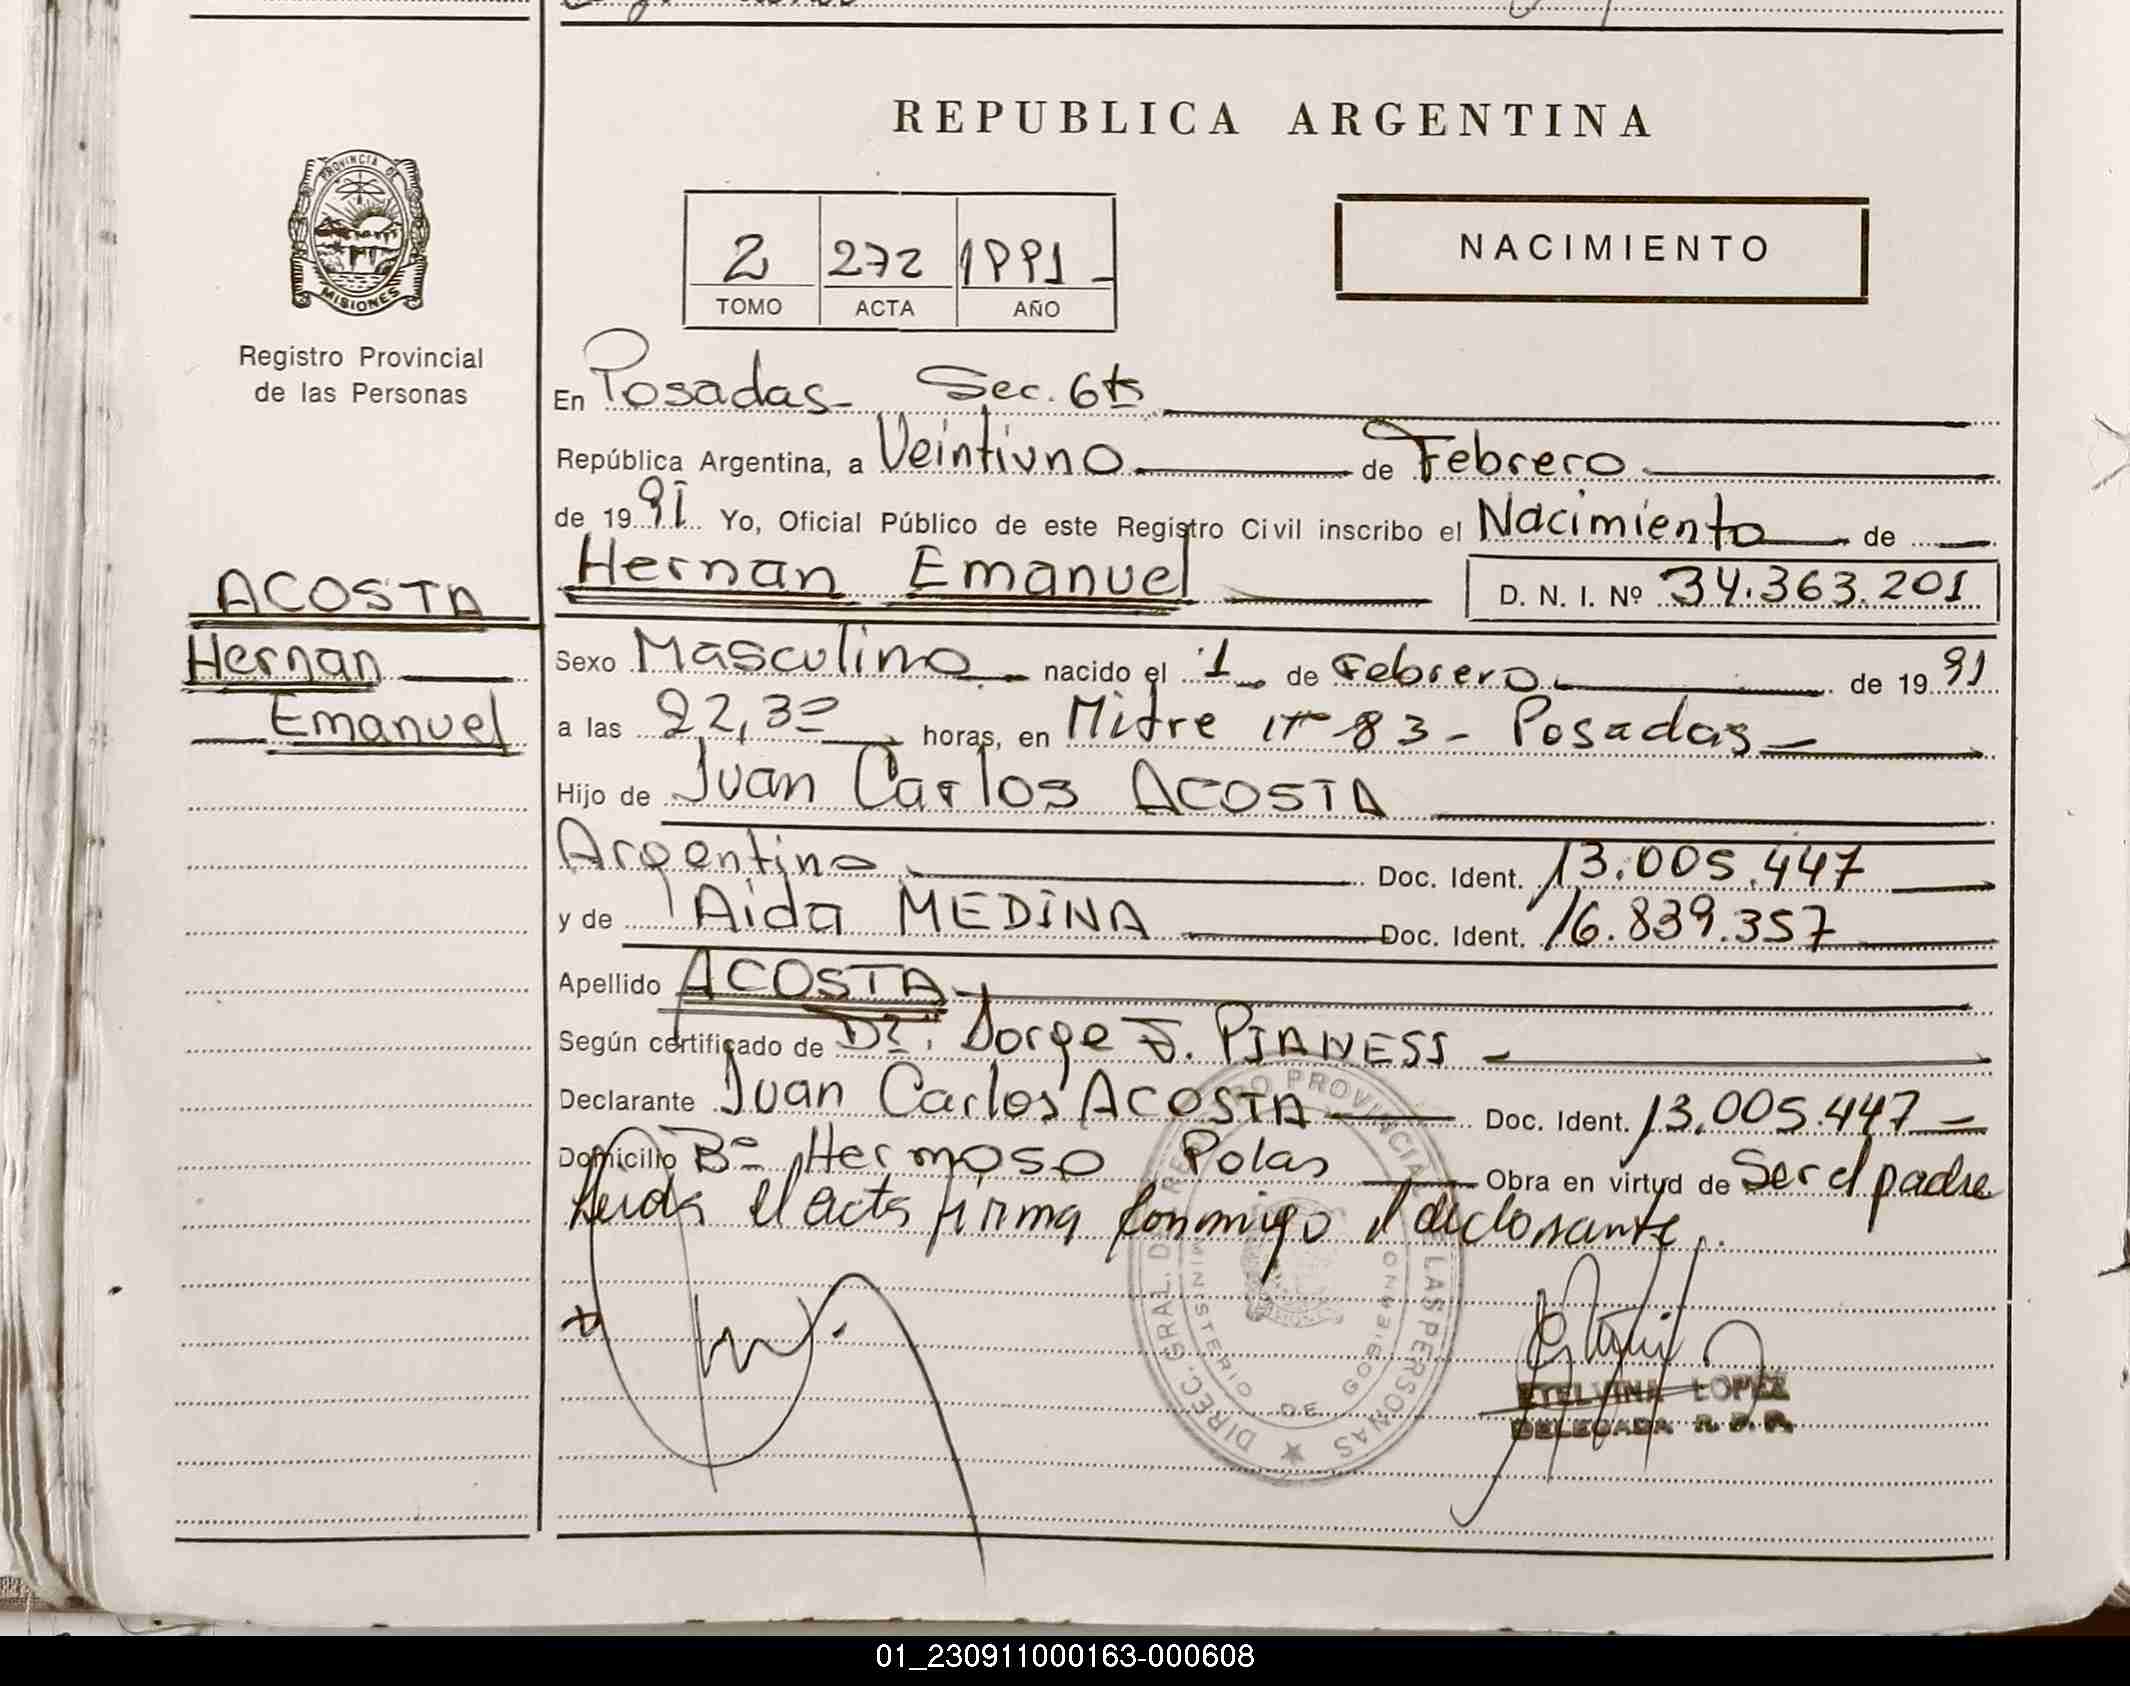 REPUBLICA ARGENTINA
PROVINCIA DE
MISIONES
Registro Provincial
de las Personas
2 272 1991 -
TOMO ACTA AÑO
NACIMIENTO
En Posadas - Sec. 6ta
República Argentina, a Veintiuno de Febrero
de 19 91 Yo, Oficial Público de este Registro Civil inscribo el Nacimiento de
ACOSTA
Hernan
Emanuel
Hernan Emanuel D. N. I. Nº 34.363.201
Sexo Masculino nacido el 1 de Febrero de 19 91
a las 22,30 horas, en Mitre nº 83 - Posadas
Hijo de Juan Carlos ACOSTA
Argentino Doc. Ident. 13.005.447
y de Aida MEDINA Doc. Ident. 16.839.357
Apellido ACOSTA
Según certificado de Dr. Jorge J. PIANESSI
Declarante Juan Carlos ACOSTA Doc. Ident. 13.005.447
Domicilio Bº Hermoso Polas Obra en virtud de Ser el padre
Leida el acta firma conmigo el declarante.
DIREC. GRAL. DEL REGISTRO PROVINCIAL DE LAS PERSONAS
MINISTERIO DE GOBIERNO
ETELVINA LOPEZ
DELEGADA R. P. P.
01_230911000163-000608